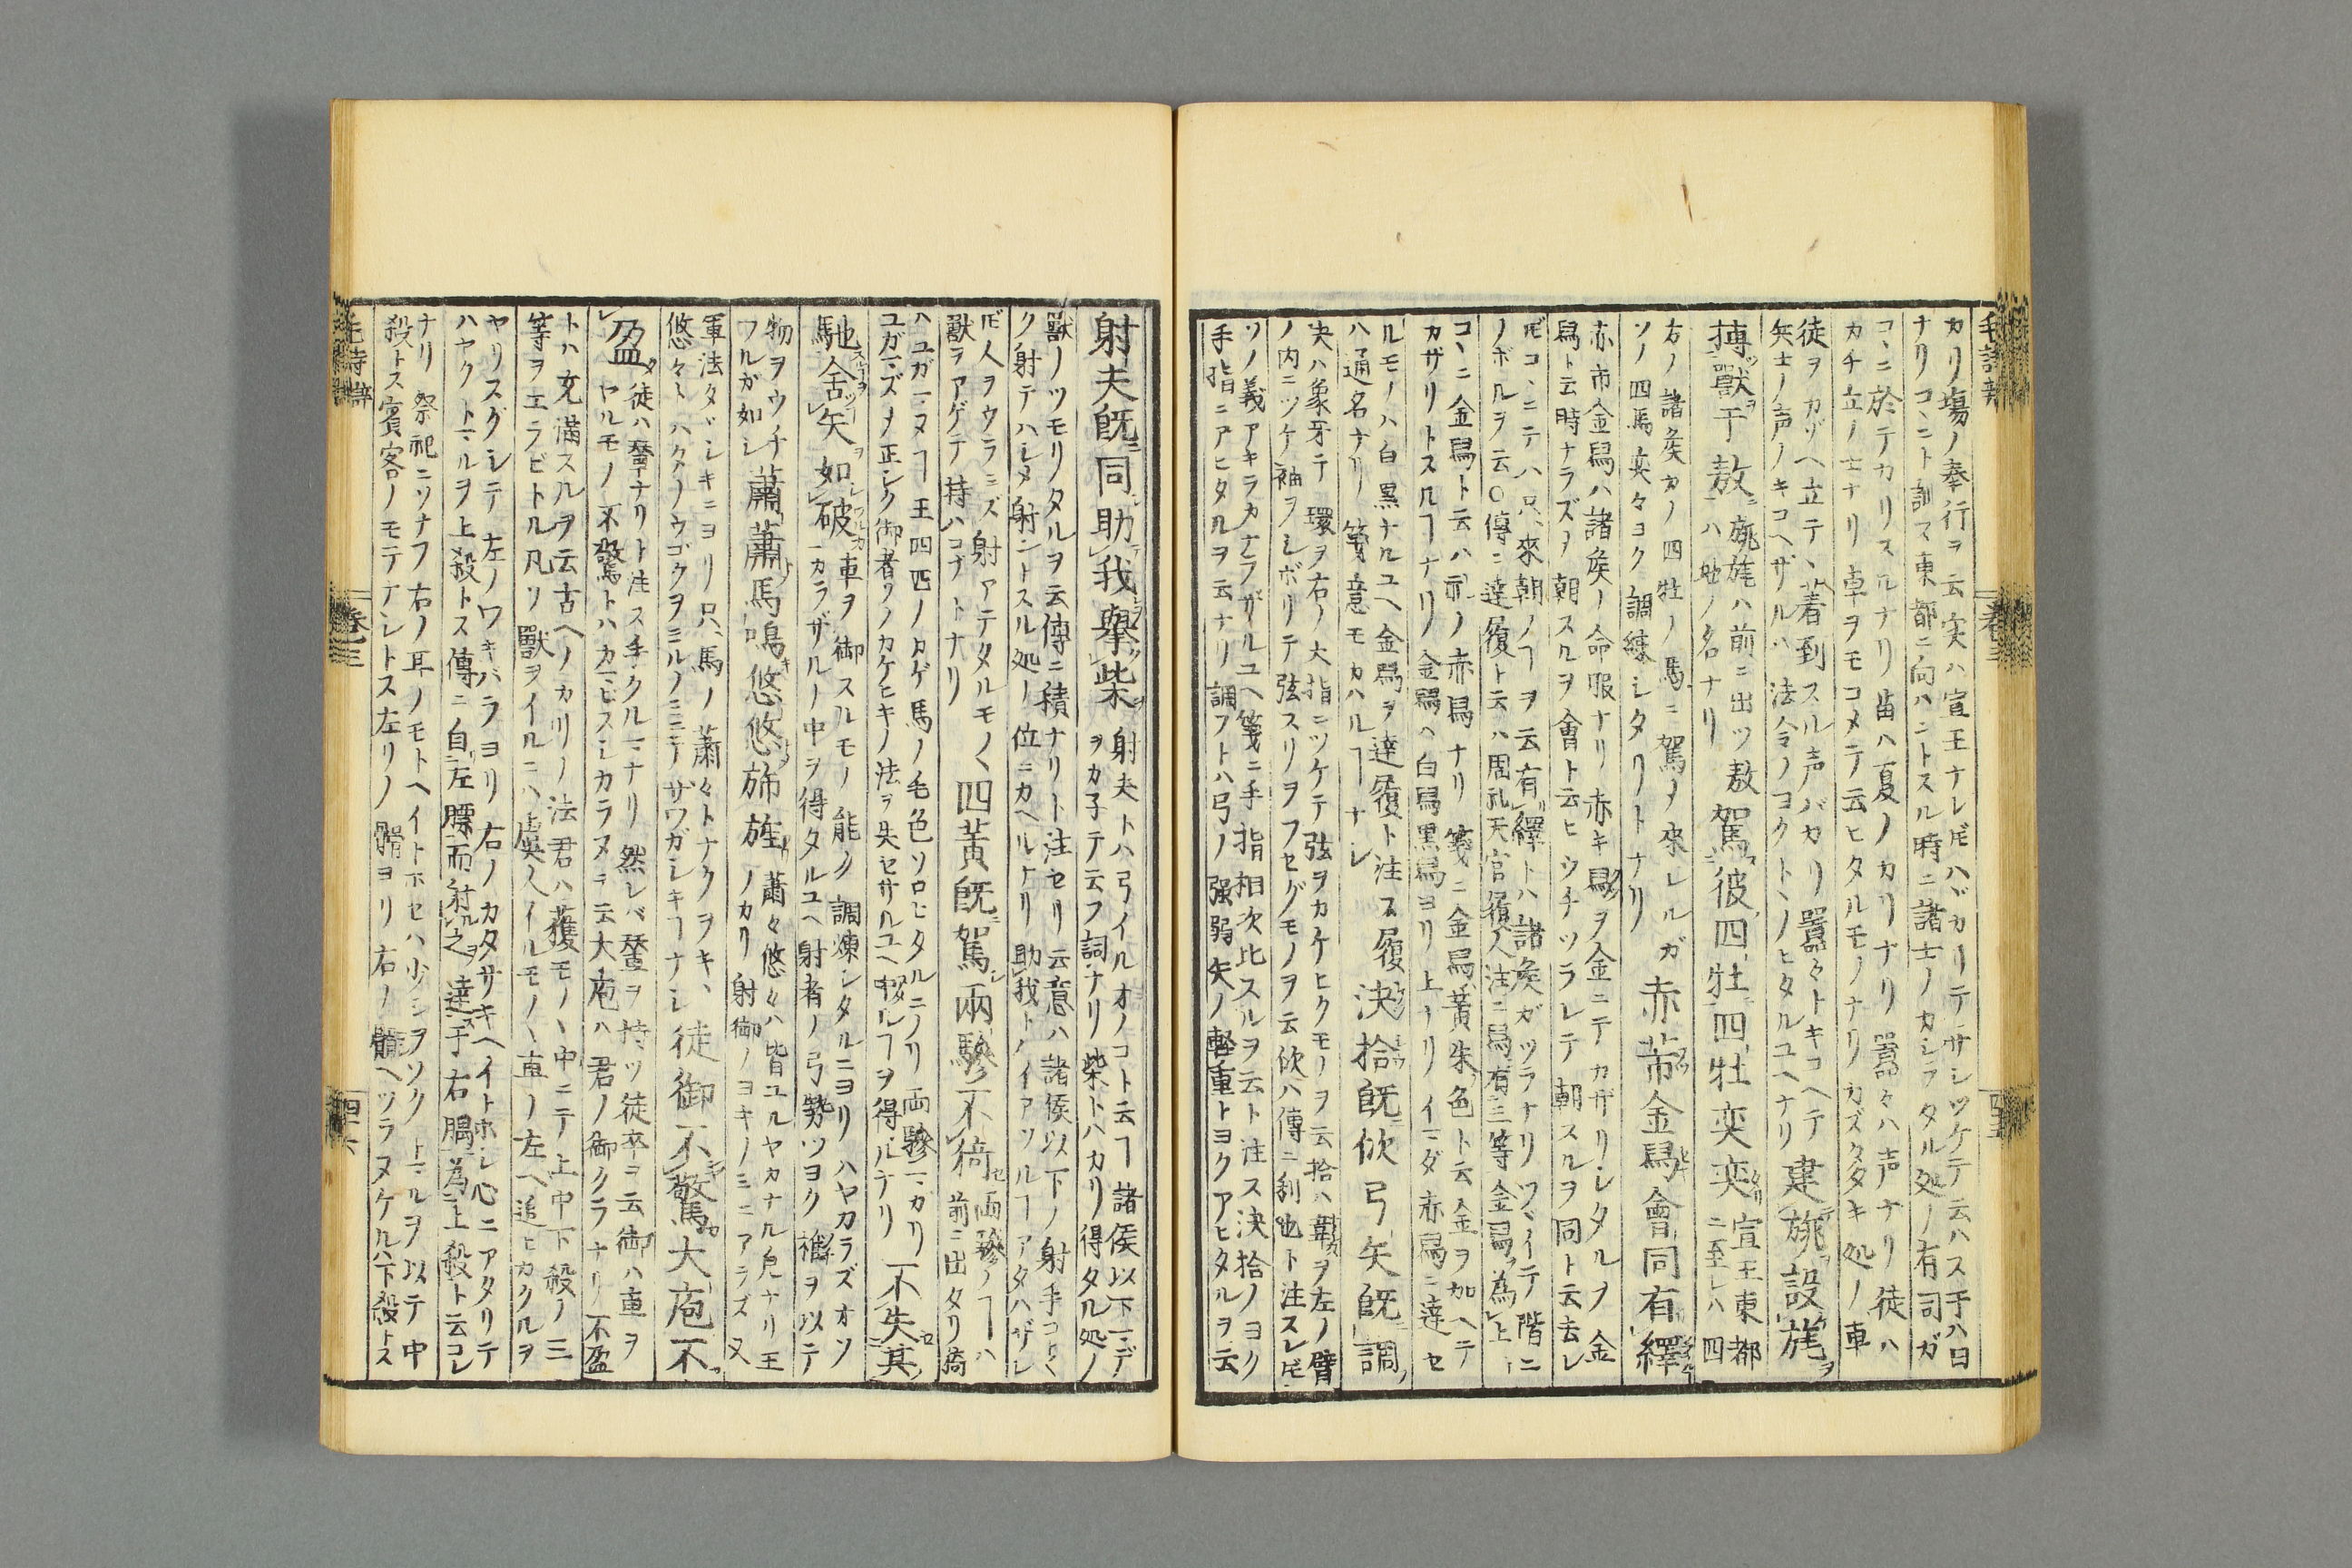 カリ塲ノ奉行ヲ云実ハ宣王ナレ𪜈ハヾカリテサシツケテ云ハス于ハ曰
ナリコヽニト訓ス東都ニ向ハントスル時ニ諸士ノカシフタル処ノ有司ガ
コヽニ於テカリスルナリ苗ハ夏ノカリナリ囂々ハ声ナリ徒ハ
カチ立ノ士ナリ車ヲモコメテ云ヒタルモノナリカズタダキ処ノ車
徒ヲカゾヘ立テヽ着到スル声バカリ囂々トキコヘテ
矢士ノ声ノキコヘザルハ法令ノヨクトヽノヒタルユヘナリ
建旐設旄
搏獸于敖
旐旄ハ前ニ出ツ敖
ハ地ノ名ナリ
駕彼四牡四牡奕奕
宣王東都
ニ至レハ四
方ノ諸矦カノ四牡ノ馬ニ駕ノ來レルガ
ソノ四馬奕々ヨク調練シタリトナリ
赤芾金舄會同有繹
赤市金舄ハ諸矦ノ命服ナリ赤キ舄ヲ金ニテカザリシタルヲ金
舄ト云時ナラズノ朝スルヲ會ト云ヒウチツラレテ朝スルヲ同ト云去レ
𪜈コヽニテハ只來朝ノヿヲ云有繹トハ諸矦ガツラナリツヾイテ階ニ
ノボルヲ云○傳ニ達履ト云ハ周礼天官履人注ニ舄有三等金舄為上
コヽニ金舄ト云ハ礼ノ赤舄ナリ箋ニ金舄黃朱色ト云金ヲ加ヘテ
カザリトスルヿナリ金舄ヘ白舄黒舄ヨリ上ナリイマダ赤舄ニ達セ
ルモノハ白黒ナルユヘ金舄ヲ達履ト注ス履
ハ通名ナリ箋意モカハルヿナシ
決拾既佽弓矢既調
夬ハ象牙テ環ヲ右ノ大指ニツケテ弦ヲカケヒクモノヲ云拾ハ韝ヲ左ノ臂
ノ内ニツケ袖ヲシボリテ弦スリヲフセグモノヲ云佽ハ傳ニ利也ト注スレ𪜈
ソノ義アキラカナラザルユヘ箋ニ手指相次比スルヲ云ト注ス決拾ノヨク
手指ニアヒタルヲ云ナリ調フトハ弓ノ强弱矢ノ軽重トヨクアヒタルヲ云
射夫既同助我擧柴
射夫トハ弓イルオノコト云ヿ諸侯以下マデ
ヲカ子テ云フ詞ナリ柴トハカリ得タル処ノ
獸ノツモリタルヲ云傳ニ積ナリト注セリ云意ハ諸侯以下ノ射手コト〱
ク射テハシメ射ントスル処ノ位ニカヘルナリ助我トノイアツルヿアタハザレ
𪜈人ヲウラミズ射アテタルモノヽ
獸ヲアゲテ持ハコブトナリ
四黃既駕兩驂不猗
両驂ノヿハ
前ニ出タリ猗
ハユガマヌヿ王四匹ノカゲ馬ノ毛色ソロヒタルニノリ両驂マガリ
ユガマズノ正シク御者ソノカケヒキノ法ヲ失セサルユヘ揆ルヿヲ得ルナリ
不失其
馳舍矢如破
車ヲ御スルモノ能ク調煉シタルニヨリハヤカラズオソ
カラザルノ中ヲ得タルユヘ射者ノ弓勢ツヨク椎ヲ以テ
物ヲウチ
ワルカ如シ
蕭蕭馬鳴悠悠旆旌
蕭々悠々ハ皆ユルヤカナル皃ナリ王
ノカリ射御ノヨキノミニアラズ又
軍法タヾシキニヨリ只馬ノ蕭々トナクヲキヽ
悠々トハタノウゴクヲミルノミニテザワガシキヿナシ
徒御不驚大庖不
盈
徒ハ輦ナリト注ス手クルマナリ然レバ輦ヲ持ツ徒卒ヲ云御ハ車ヲ
ヤルモノ不驚トハカマビスシカラヌヲ云大庖ハ君ノ御クラナリ不盈
トハ充満スルヲ云古ヘノカリノ法君ハ獲モノヽ中ニテ上中下殺ノ三
等ヲエラビトル凡ソ獸ヲイルニハ虞人イルモノヽ車ノ左ヘ追ヒカクルヲ
ヤリスグシテ左ノワキバラヨリ右ノカタサキヘイトホシ心ニアタリテ
ハヤクトマルヲ上殺トス傳ニ自左膘而射之達于右腢為上殺ト云コレ
ナリ祭祀ニソナフ右ノ耳ノモトヘイトホセハ少シヲソクトマルヲ以テ中
殺トス賓客ノモテナシトス左リノ髀ヨリ右ノ䯚ヘツラヌケルハ下殺トス
毛詩辯
卷三
四十六